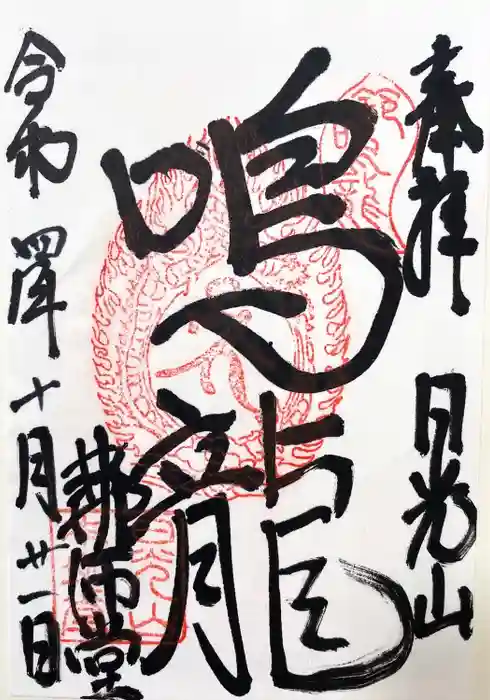 奉拝 日光山
鳴龍
薬師堂
令和四年十月廿一日